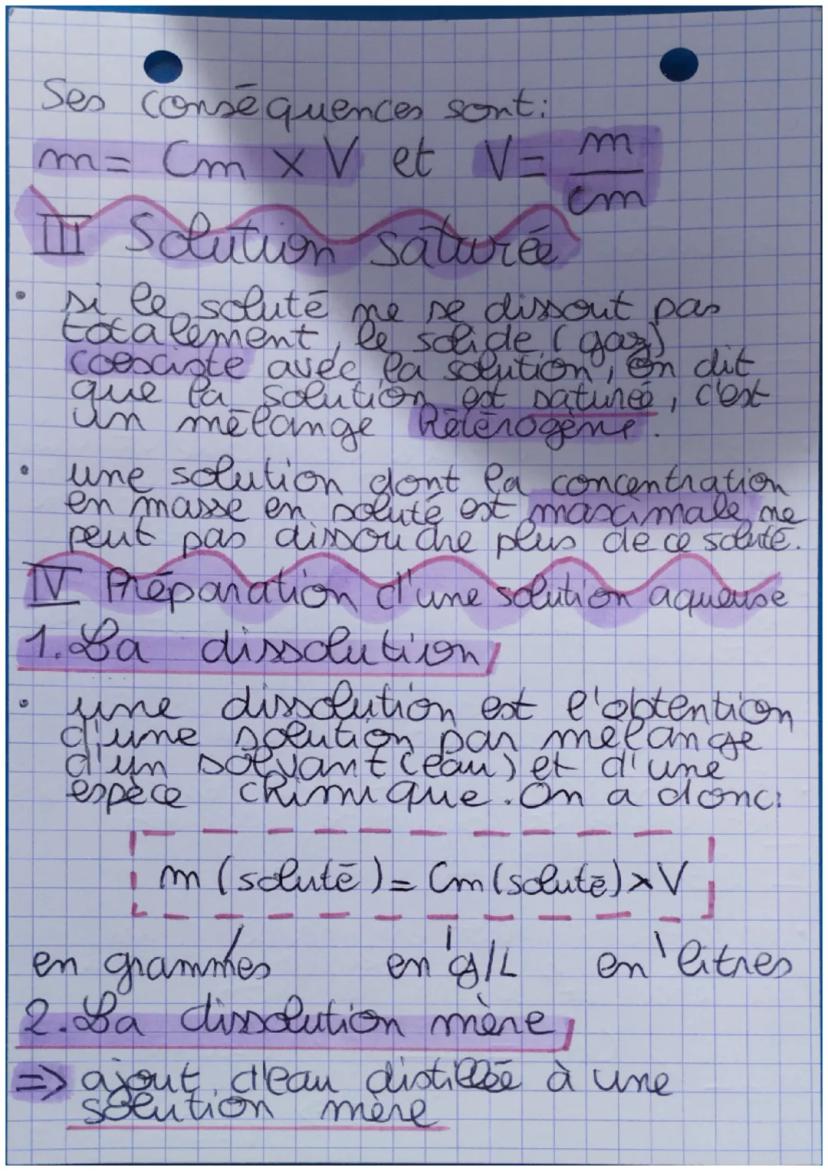 Ses conséquences sont:
m = Cm x V et V = m/cm
III Solution saturée
• si le soluté ne se dissout pas
totalement, le solide (gaz)
coexiste avec la solution, on dit
que la solution est saturée, c'est
un mélange hétérogène.
• une solution dont la concentration
en masse en soluté est maximale ne
peut pas dissoudre plus de ce soluté.
IV Préparation d'une solution aqueuse
1. La dissolution
• une dissolution est l'obtention
d'une solution par mélange
d'un solvant (eau) et d'une
espèce chimique. On a donc:
m (soluté) = Cm (soluté) x V
en grammes en g/L en litres
2. La dissolution mère
=> ajout d'eau distillée à une
solution mère